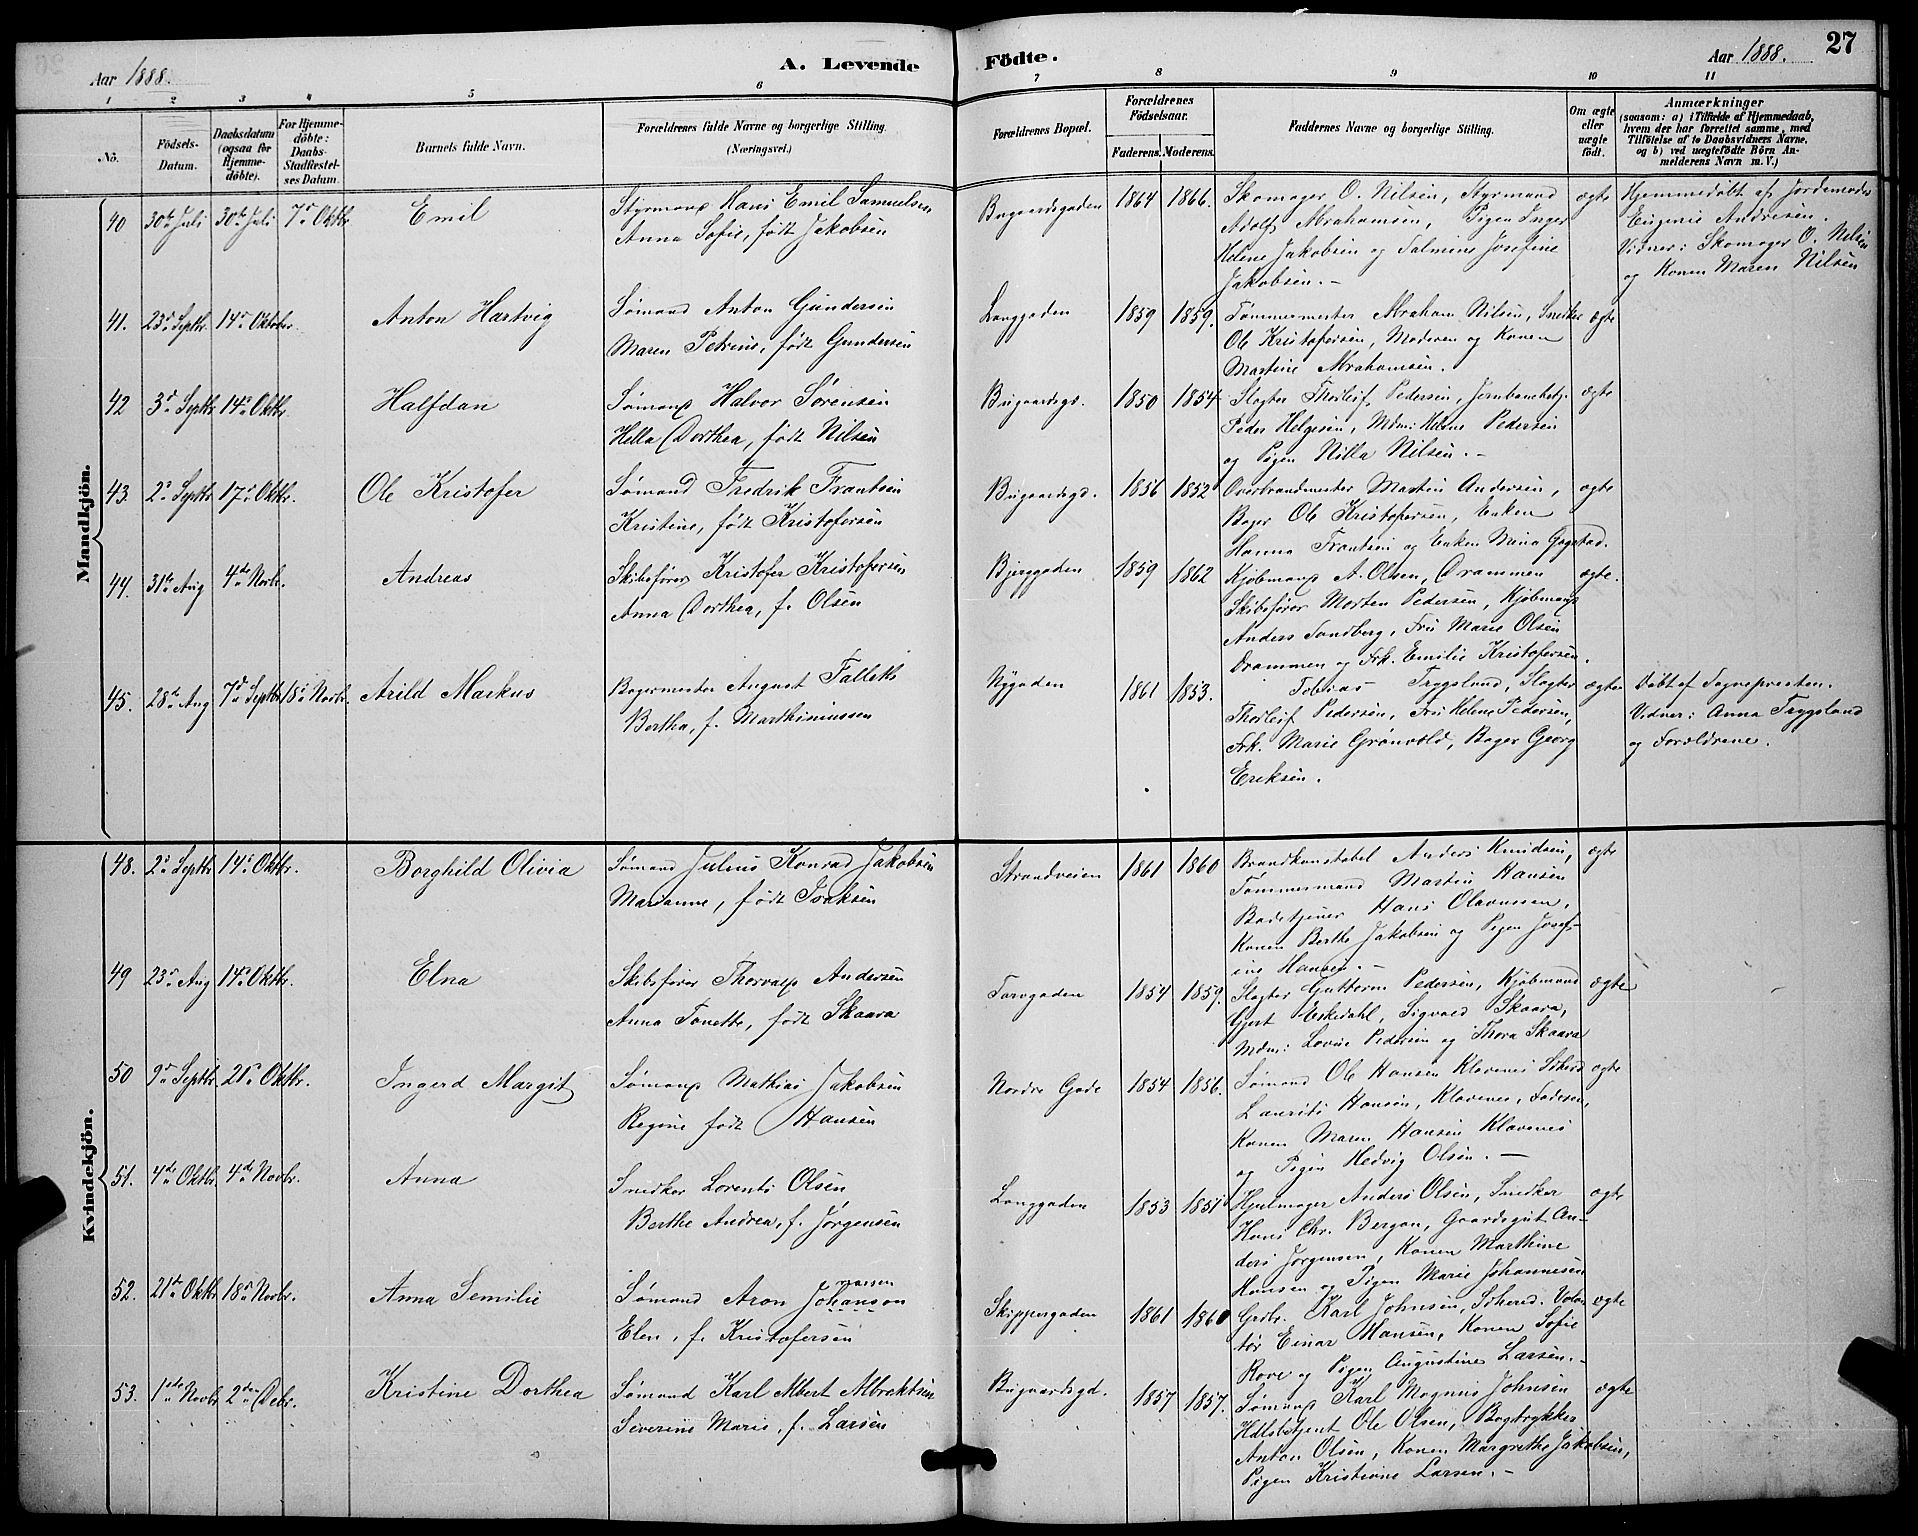 Aar 1888. A. Levende Födte. Aar 1888. 27
1 2 3 4 5 6 7 8 9 10 11
No. Födsels-Datum. Daabsdatum (ogsaa for Hjemmedöbte). For Hjemmedöbte: Daabs-Stadfestelses Datum. Barnets fulde Navn. Forældrenes fulde Navne og borgerlige Stilling. (Næringsvei.) Forældrenes Bopæl. Forældrenes Födselsaar. Faderens. Moderens. Faddernes Navne og borgerlige Stilling. Om ægte eller uægte født. Anmærkninger (saasom: a) i Tilfælde af Hjemmedaab, hvem der har forrettet samme, med Tilföielse af to Daabsvidners Navne, og b) ved uægtefödte Börn Anmelderens Navn m. V.)
Mandkjön.
40 30te Juli 30te Juli 7de Oktbr. Emil
Styrmand Hans Emil Samuelsen
Anna Sofie, født Jakobsen
Bugaardsgaden 1864 1866.
Skomager O. Nilsen, Styrmand
Adolf Abrahamsen, Pigen Inger
Helene Jakobsen og Talmine Josefine
Jakobsen. -
ægte
Hjemmedøbt af Jordemoder
Eugenie Andresen.
Vidner: Skomager O. Nilsen
og Konen Maren Nilsen
41. 23de Septbr. 14de Oktober. Anton Hartvig
Sømand Anton Gundersen
Maren Petrine, født Gundersen
Langgaden 1859 1859.
Tømmermester Abraham Nilsen, Snedker
Ole Kristofersen, Moderen og Konen
Martine Abrahamsen.
ægte
42 3de Septbr 14de Oktbr. Halfdan
Sømand Halvor Sørensen
Hella Dorthea, født Nilsen
Bugaardsg. 1850 1854
Slagter Thorleif Pedersen, Jernbanebetj.
Peder Helgesen, Mdm: Helene Pedersen
og Pigen Nilla Nilsen. -
ægte
43 2de Septbr 17de Oktbr. Ole Kristofer
Sømand Fredrik Frantsen
Kristine, født Kristofersen
Bugaardsgd. 1856 1852
Overbrandmester Martin Andersen,
Bager Ole Kristofersen, Enken
Hanna Frantsen og Enken Mina Gogstad.
ægte
44. 31te Aug 4de Novbr. Andreas
Skibsfører Kristofer Kristofersen
Anna Dorthea, f. Olsen
Bjerggaden 1859 1862
Kjøbmand A. Olsen, Drammen
Skibsfører Morten Pedersen, Kjøbmand
Anders Sandberg, Fru Marie Olsen
Drammen og Frk. Emilie Kristofersen.
ægte.
45. 28de Aug 7de Septbr 18de Novbr. Arild Markus
Bagermester August Falleth
Bertha, f. Marthiniussen
Nygaden 1861 1853.
Tobias Trygsland, Slagter
Thorleif Pedersen, Fru Helene Pedersen,
Frk. Marie Grønvold, Bager Georg
Eriksen.
ægte
Døbt af Sognepresten.
Vidner: Anna Trygsland
og Forældrene.
Kvindekjön.
48. 2de Septbr 14de Oktbr. Borghild Olivia
Sømand Julius Konrad Jakobsen
Marianne, født Isaksen
Strandveien 1861 1860
Brandkonstabel Anders Knudsen,
Tømmermand Martin Hansen
Badetjener Hans Olavussen,
Konen Berthe Jakobsen og Pigen Josef-
ine Hansen. -
ægte
49 23de Aug 14de Oktbr. Elna
Skibsfører Thorvald Andersen
Anna Tonette, født Skaara
Torvgaden 1854 1859.
Slagter Guttorm Pedersen, Kjøbmand
Gjert Eskedahl, Sigvald Skaara,
Mdm: Lovise Pedersen og Thora Skaara
ægte
50 9de Septbr. 21de Oktbr. Ingerd Margit
Sømand Mathias Jakobsen
Regine født Hansen
Nordre Gade 1854 1856.
Sømand Ole Hansen Klavenes Sthered
Laurits Hansen, Klavenes, Faderen,
Konen Maren Hansen Klavenes
og Pigen Hedvig Olsen. -
ægte
51. 4de Oktbr. 4de Novbr. Anna
Snedker Lorents Olsen
Berthe Andrea, f. Jørgensen
Langgaden 1853 1851
Hjulmager Anders Olsen, Snedker
Hans Chr. Bergan, Gaardsgut An-
ders Jørgensen, Konen Marthine
Hansen og Pigen Marie Johannesen
ægte
52. 21de Oktbr 18de Novbr. Anna Semilie
Sømand Aron Johanson
Elen, f. Kristofersen
Skippergaden 1861 1860
Grdbr. Karl Johnsen, Sthered. Volon-
tør Einar Hansen, Konen Sofie
Rove og Pigen Augustine Larsen. -
ægte
53. 1ste Novbr 2den Debr. Kristine Dorthea
Sømand Karl Albert Albrektsen
Severine Marie, f. Larsen
Bugaardsgd. 1857 1857.
Sømand Karl Magnus Johnsen
Hdlsbetjent Ole Olsen, Bogtrykker
Anton Olsen, Konen Margrethe Jakobsen,
Pigen Kristiane Larsen. -
ægte